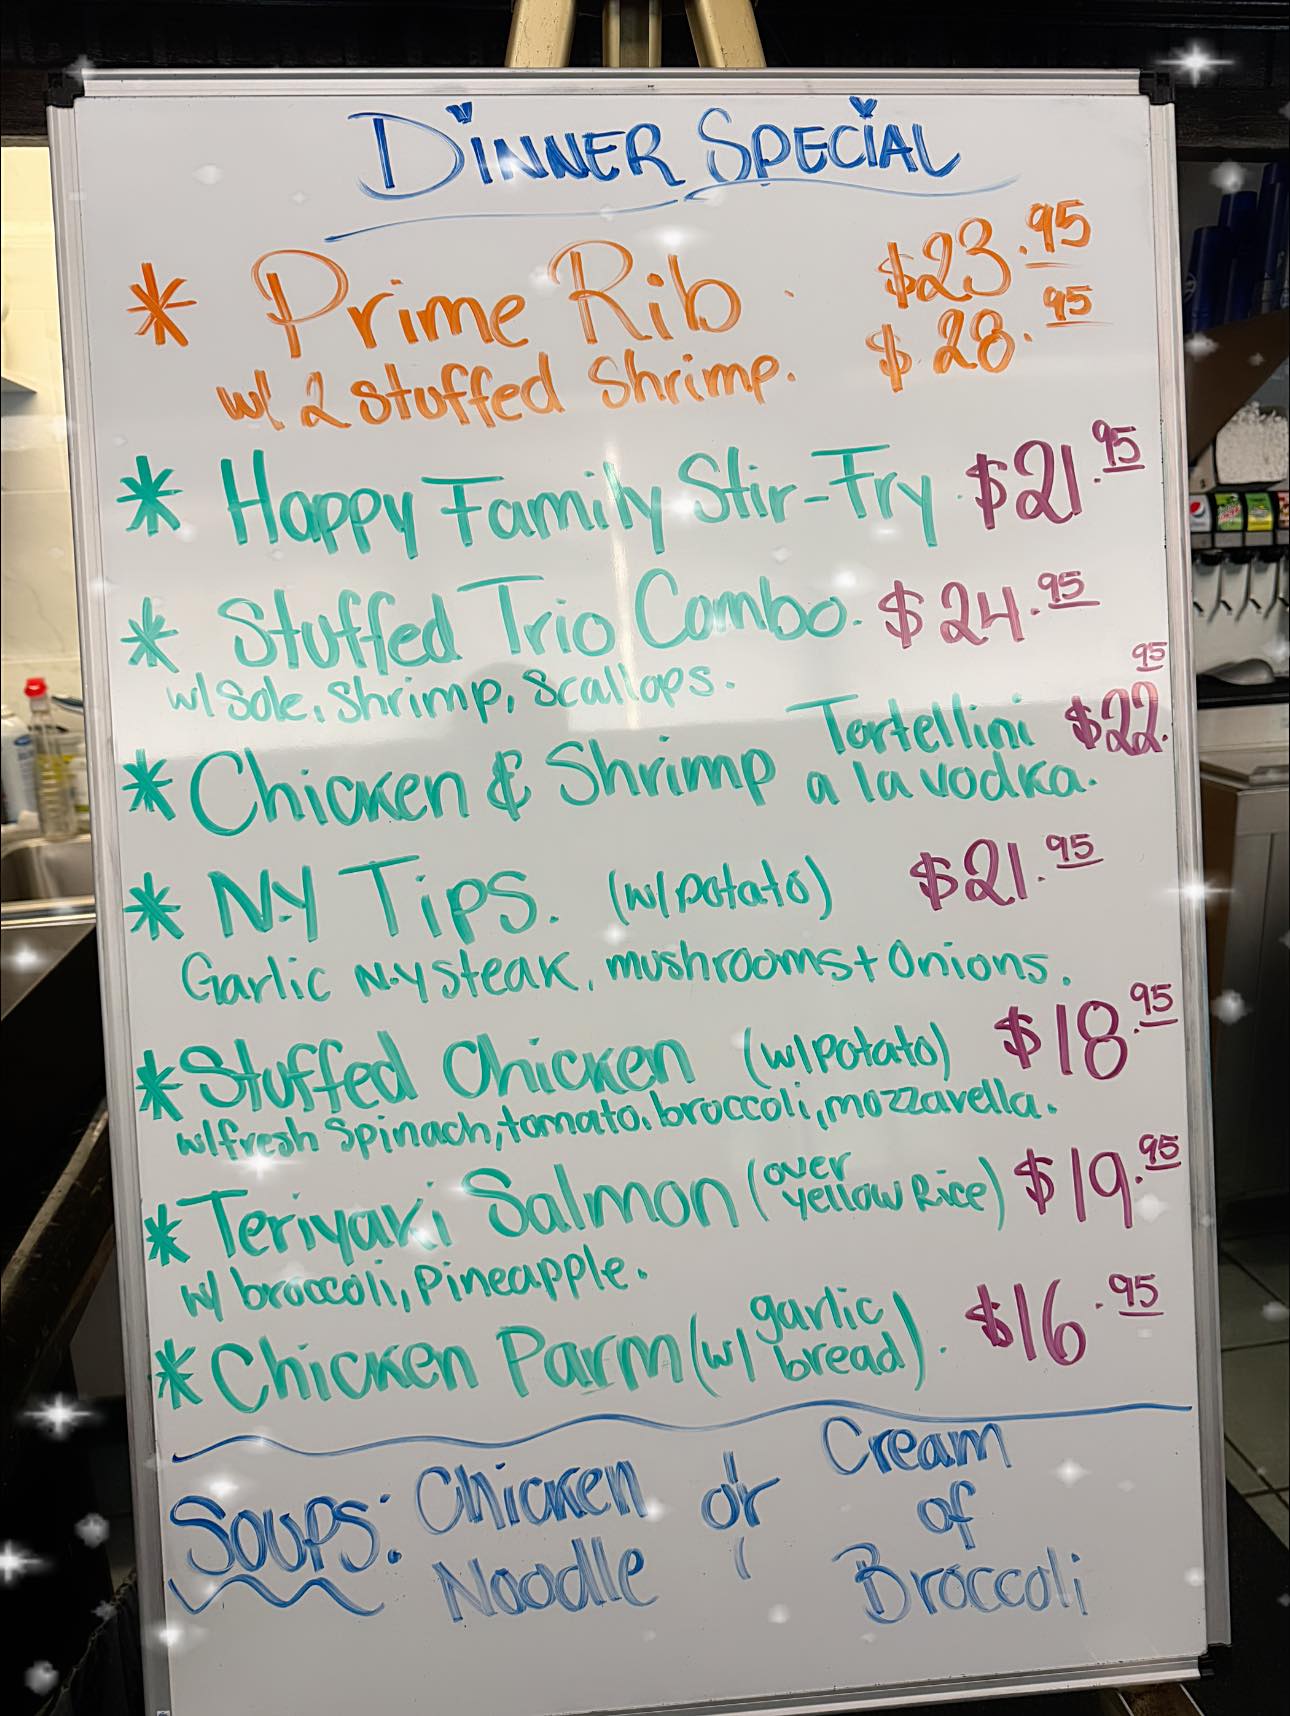 DINNER SPECIAL
* Prime Rib. $23.95
w/ 2 stuffed Shrimp. $28.95
* Happy Family Stir-Fry. $21.95
* Stuffed Trio Combo. $24.95
w/ Sole, Shrimp, Scallops.
* Chicken & Shrimp Tortellini a la vodka. $22.95
* N.Y Tips. (w/ potato) $21.95
Garlic N.Y steak, mushrooms + Onions.
* Stuffed Chicken (w/ potato) $18.95
w/ fresh Spinach, tomato, broccoli, mozzarella.
* Teriyaki Salmon (over yellow Rice) $19.95
w/ broccoli, Pineapple.
* Chicken Parm (w/ garlic bread). $16.95
Soups: Chicken Noodle or Cream of Broccoli